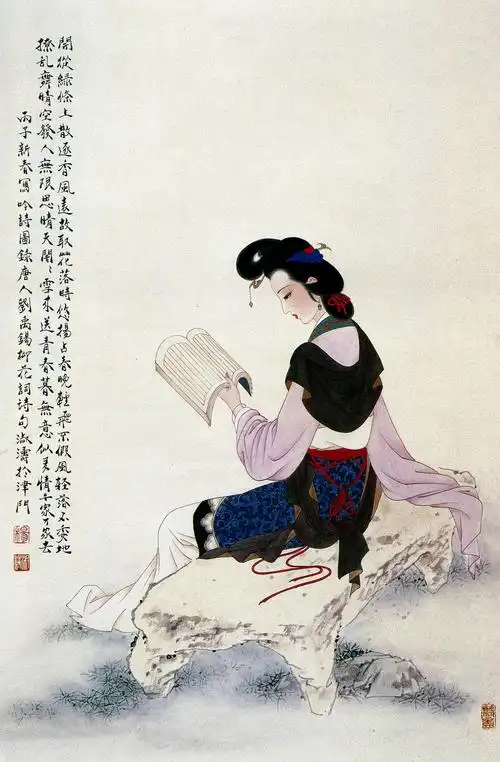 開從綠條上散逐香風遠故取花落時悠揚占春晚輕飛不假風輕落不委地
撩乱舞晴空發人無限思晴天闇〻雪來送青春暮無意似多情千家万家去
丙子新春寫吟詩圖錄唐人劉禹錫柳花詞詩句淑濤於津門